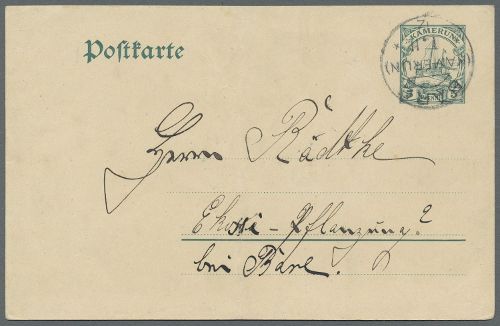 Postkarte
KAMERUN
5 5
(KAMERUN)
Herrn Rädthe
Ekossi-Pflanzung?
bei Bare.